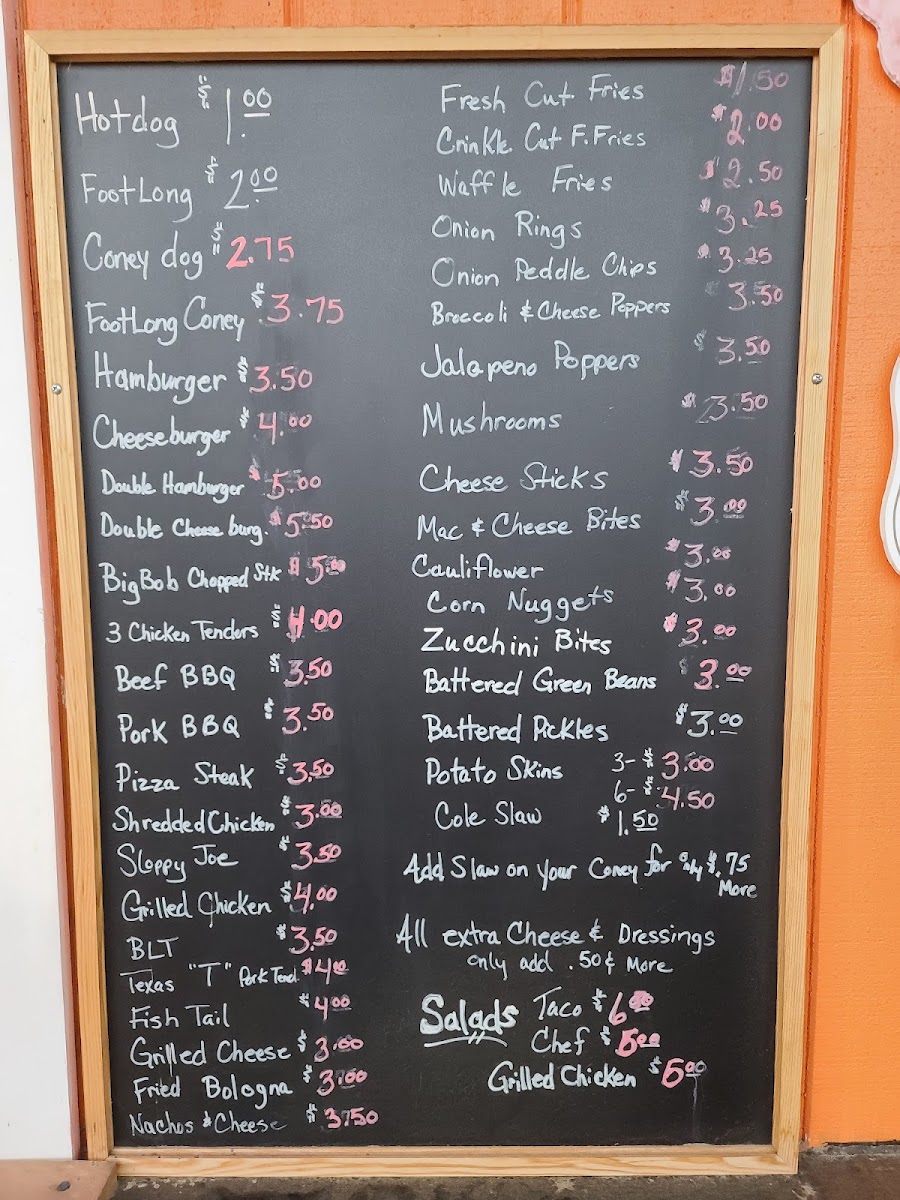 Hotdog $1.00
FootLong $2.00
Coney dog $2.75
FootLong Coney $3.75
Hamburger $3.50
Cheeseburger $4.00
Double Hamburger $5.00
Double Cheese burg. $5.50
Big Bob Chopped Stk $5.00
3 Chicken Tenders $4.00
Beef BBQ $3.50
Pork BBQ $3.50
Pizza Steak $3.50
Shredded Chicken $3.00
Sloppy Joe $3.50
Grilled Chicken $4.00
BLT $3.50
Texas "T" Pork Tend. $4.00
Fish Tail $4.00
Grilled Cheese $3.00
Fried Bologna $3.00
Nachos & Cheese $3.50
Fresh Cut Fries $1.50
Crinkle Cut F.Fries $2.00
Waffle Fries $2.50
Onion Rings $3.25
Onion Peddle Chips $3.25
Broccoli & Cheese Poppers $3.50
Jalapeno Poppers $3.50
Mushrooms $3.50
Cheese Sticks $3.50
Mac & Cheese Bites $3.00
Cauliflower $3.00
Corn Nuggets $3.00
Zucchini Bites $3.00
Battered Green Beans $3.00
Battered Pickles $3.00
Potato Skins 3- $3.00
6- $4.50
Cole Slaw $1.50
Add Slaw on your Coney for only $.75
More
All extra Cheese & Dressings
only add .50¢ More
Salads Taco $6.00
Chef $5.00
Grilled Chicken $5.00